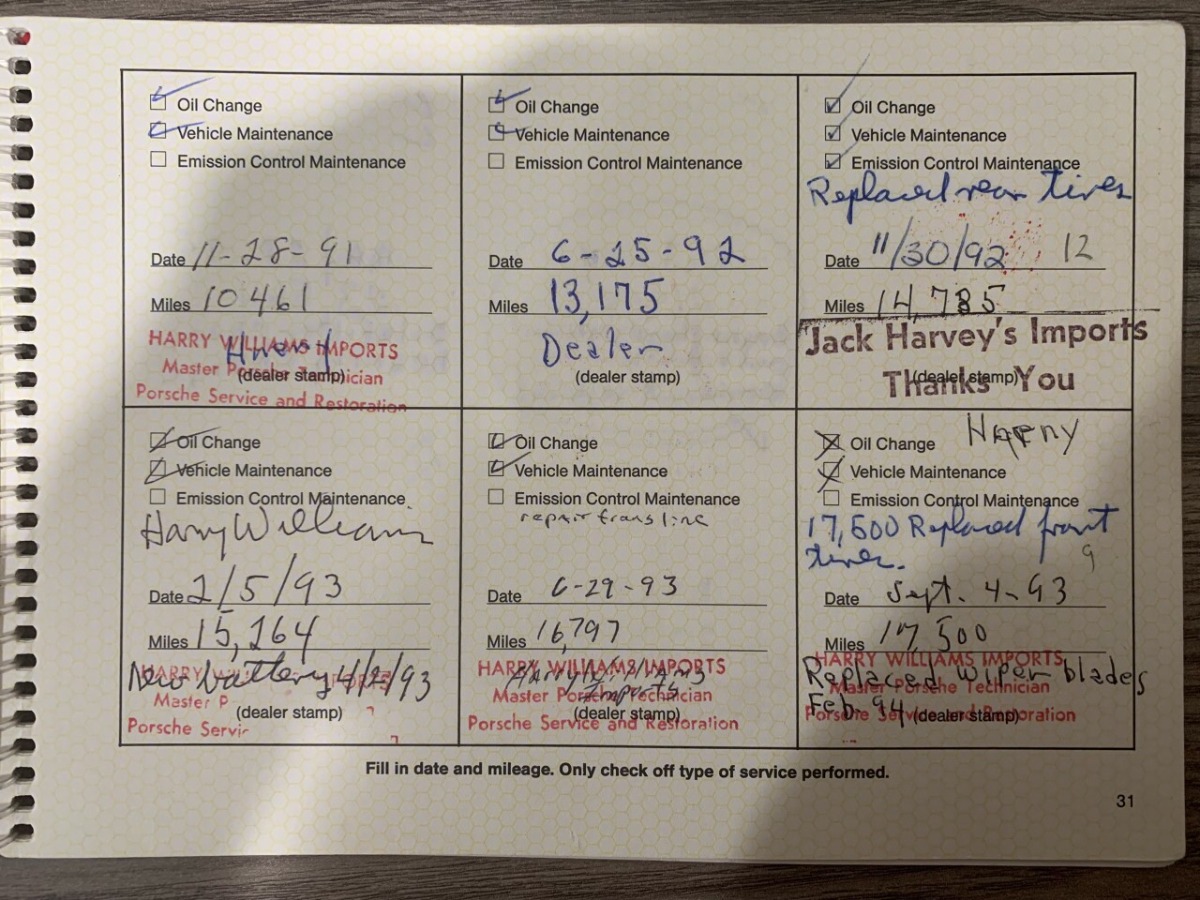 Oil Change
Vehicle Maintenance
Emission Control Maintenance
Date 11-28-91
Miles 10461
HARRY WILLIAMS IMPORTS
Master Porsche Technician
(dealer stamp)
Porsche Service and Restoration
Oil Change
Vehicle Maintenance
Emission Control Maintenance
Date 6-25-92
Miles 13,175
Dealer
(dealer stamp)
Oil Change
Vehicle Maintenance
Emission Control Maintenance
Replaced rear tires
Date 11/30/92 12
Miles 14,785
Jack Harvey's Imports
(dealer stamp)
Thanks You
Oil Change
Vehicle Maintenance
Emission Control Maintenance
Harry William
Date 2/5/93
Miles 15,264
HARRY
New battery 4/2/93
Master P
(dealer stamp)
Porsche Servi
Oil Change
Vehicle Maintenance
Emission Control Maintenance
repair trans line
Date 6-29-93
Miles 16,797
HARRY WILLIAMS IMPORTS
Harry Williams
Imports
Master Porsche Technician
(dealer stamp)
Porsche Service and Restoration
Oil Change Harry
Vehicle Maintenance
Emission Control Maintenance
17,500 Replaced front
tires.
9
Date Sept. 4-93
Miles 17,500
HARRY WILLIAMS IMPORTS
Replaced wiper blades
Master Porsche Technician
Feb-94
Porsche Service and Restoration
(dealer stamp)
Fill in date and mileage. Only check off type of service performed.
31